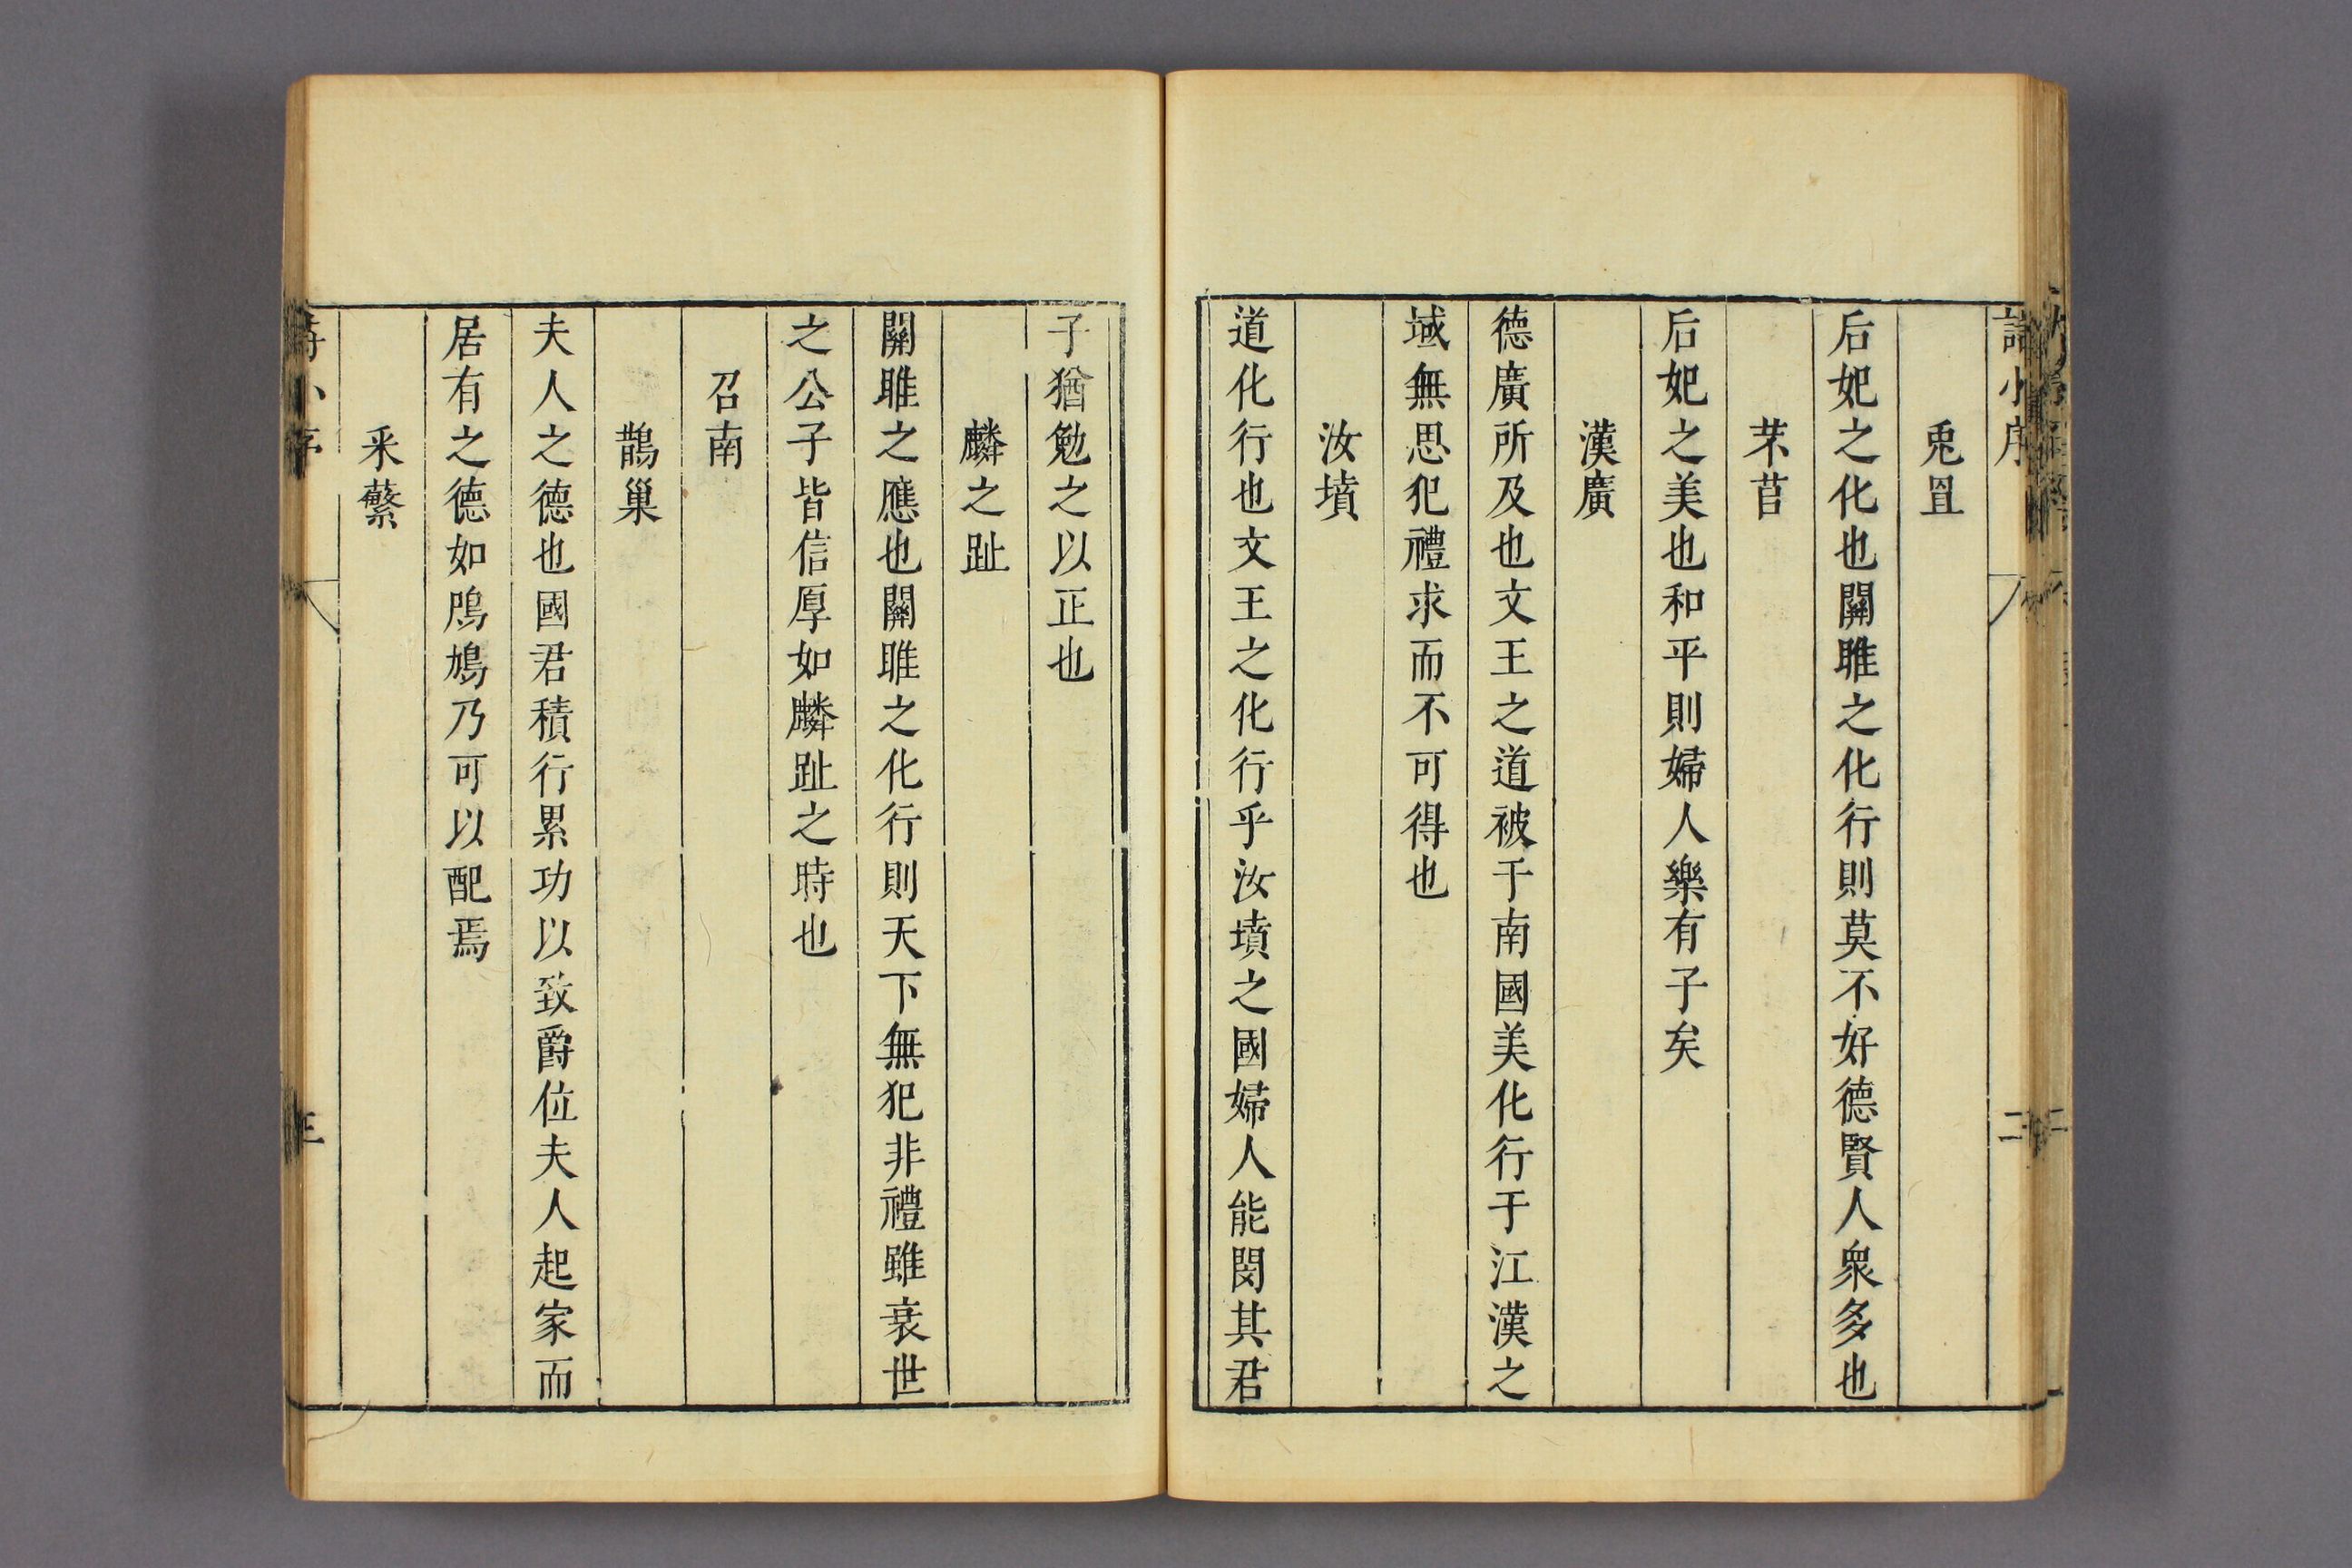 詩小序
二
兎罝
后妃之化也關雎之化行則莫不好德賢人衆多也
芣苢
后妃之美也和平則婦人樂有子矣
漢廣
德廣所及也文王之道被于南國美化行于江漢之
域無思犯禮求而不可得也
汝墳
道化行也文王之化行乎汝墳之國婦人能閔其君
子猶勉之以正也
麟之趾
關雎之應也關雎之化行則天下無犯非禮雖衰世
之公子皆信厚如麟趾之時也
召南
鵲巢
夫人之德也國君積行累功以致爵位夫人起家而
居有之德如鳲鳩乃可以配焉
采蘩
詩小序
三